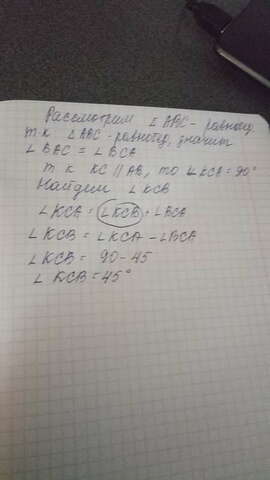 Рассмотрим ∠ABC - равнобед.
т к ∠ABC - равнобед, значит
∠BAC = ∠BCA
т к KC || AB, то ∠KCA = 90°
Найдем ∠KCB
∠KCA = ∠KCB + ∠BCA
∠KCB = ∠KCA - ∠BCA
∠KCB = 90 - 45
∠KCB = 45°